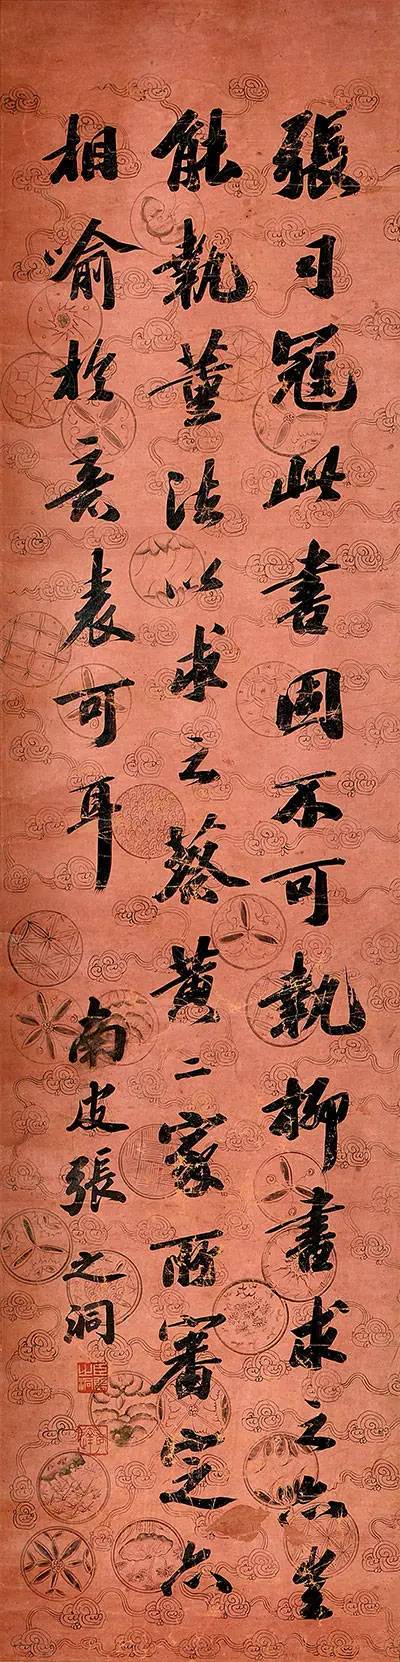 張司冠此書固不可執柳書求之亦豈
能執董法以求之蔡黃二家所審定亦
相喻於意表可耳
南皮張之洞